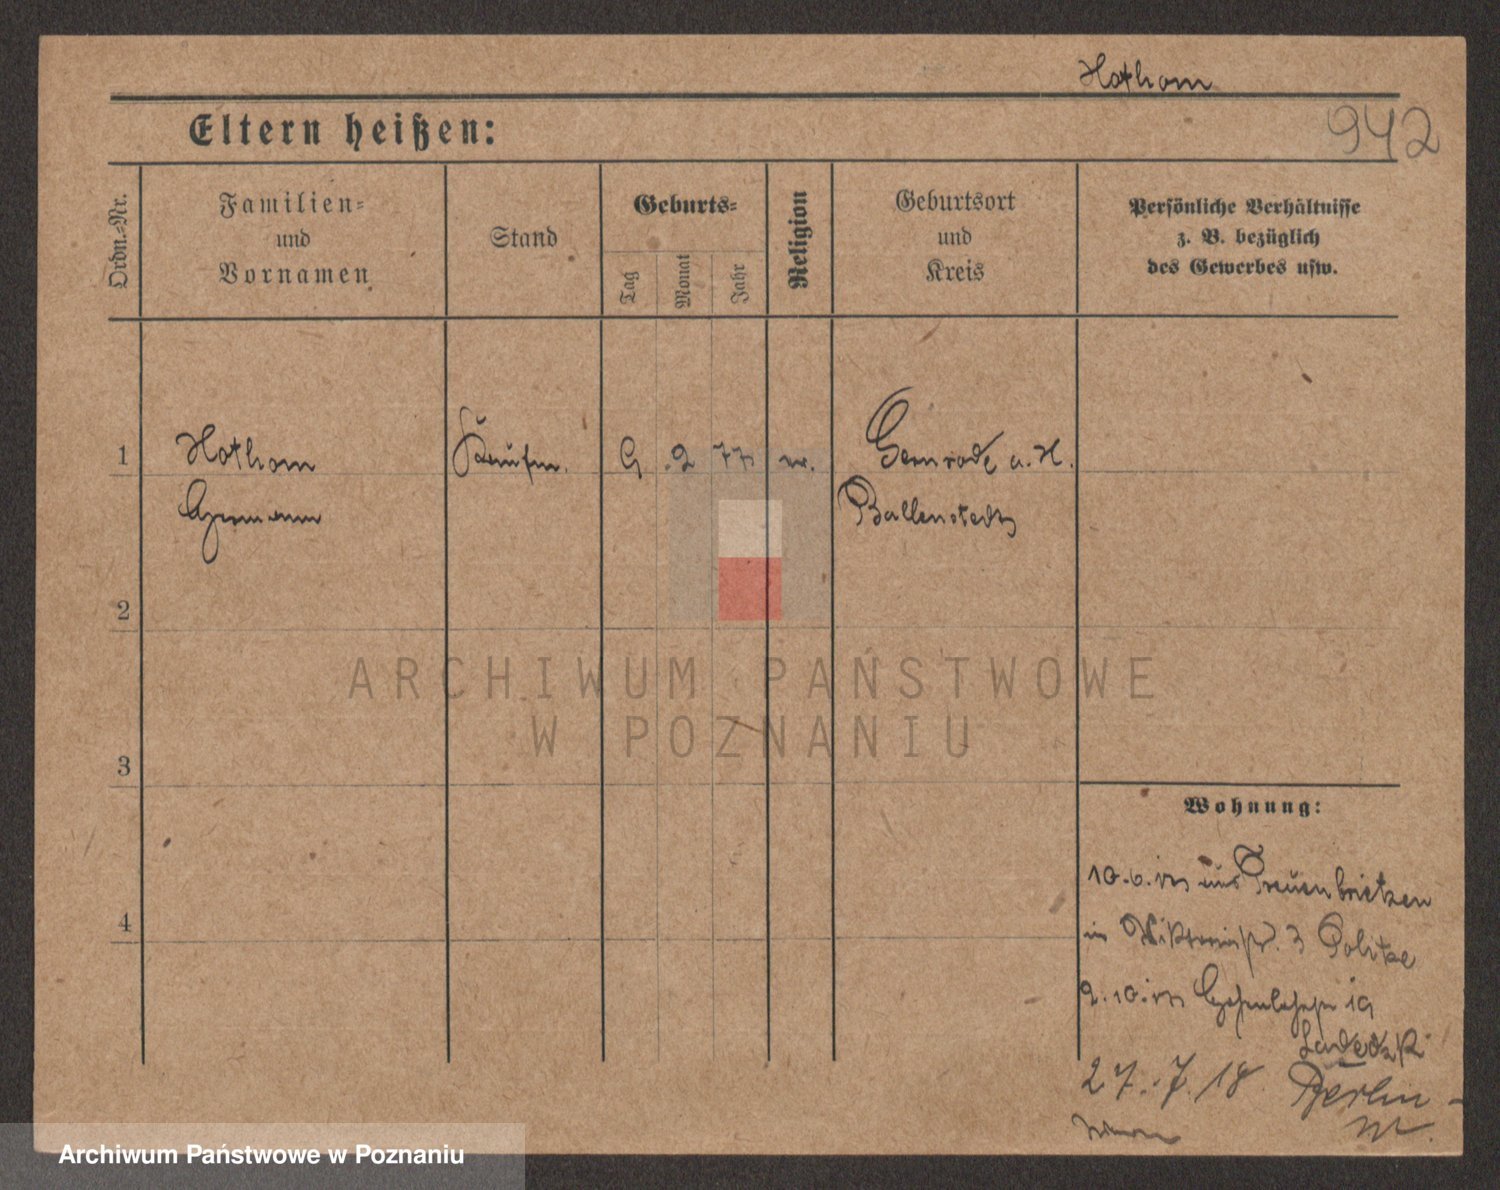 Hothorn
942
Eltern heißen:
Ordn.-Nr.
Familien-
und
Vornamen
Stand
Geburts-
Tag
Monat
Jahr
Religion
Geburtsort
und
Kreis
Persönliche Verhältnisse
z. B. bezüglich
des Gewerbes usw.
1
Hothorn
Kaufm.
9 . 2 77
Gernrode a. H.
Hermann
Ballenstedt
2
ARCHIWUM PAŃSTWOWE
W POZNANIU
3
Wohnung:
10. 6. aus Treuenbrietzen
in Viktoriastr. 3 Politze
4
2. 10. Hohenlohestr 19
27. 7. 18 Berlin -
Archiwum Państwowe w Poznaniu